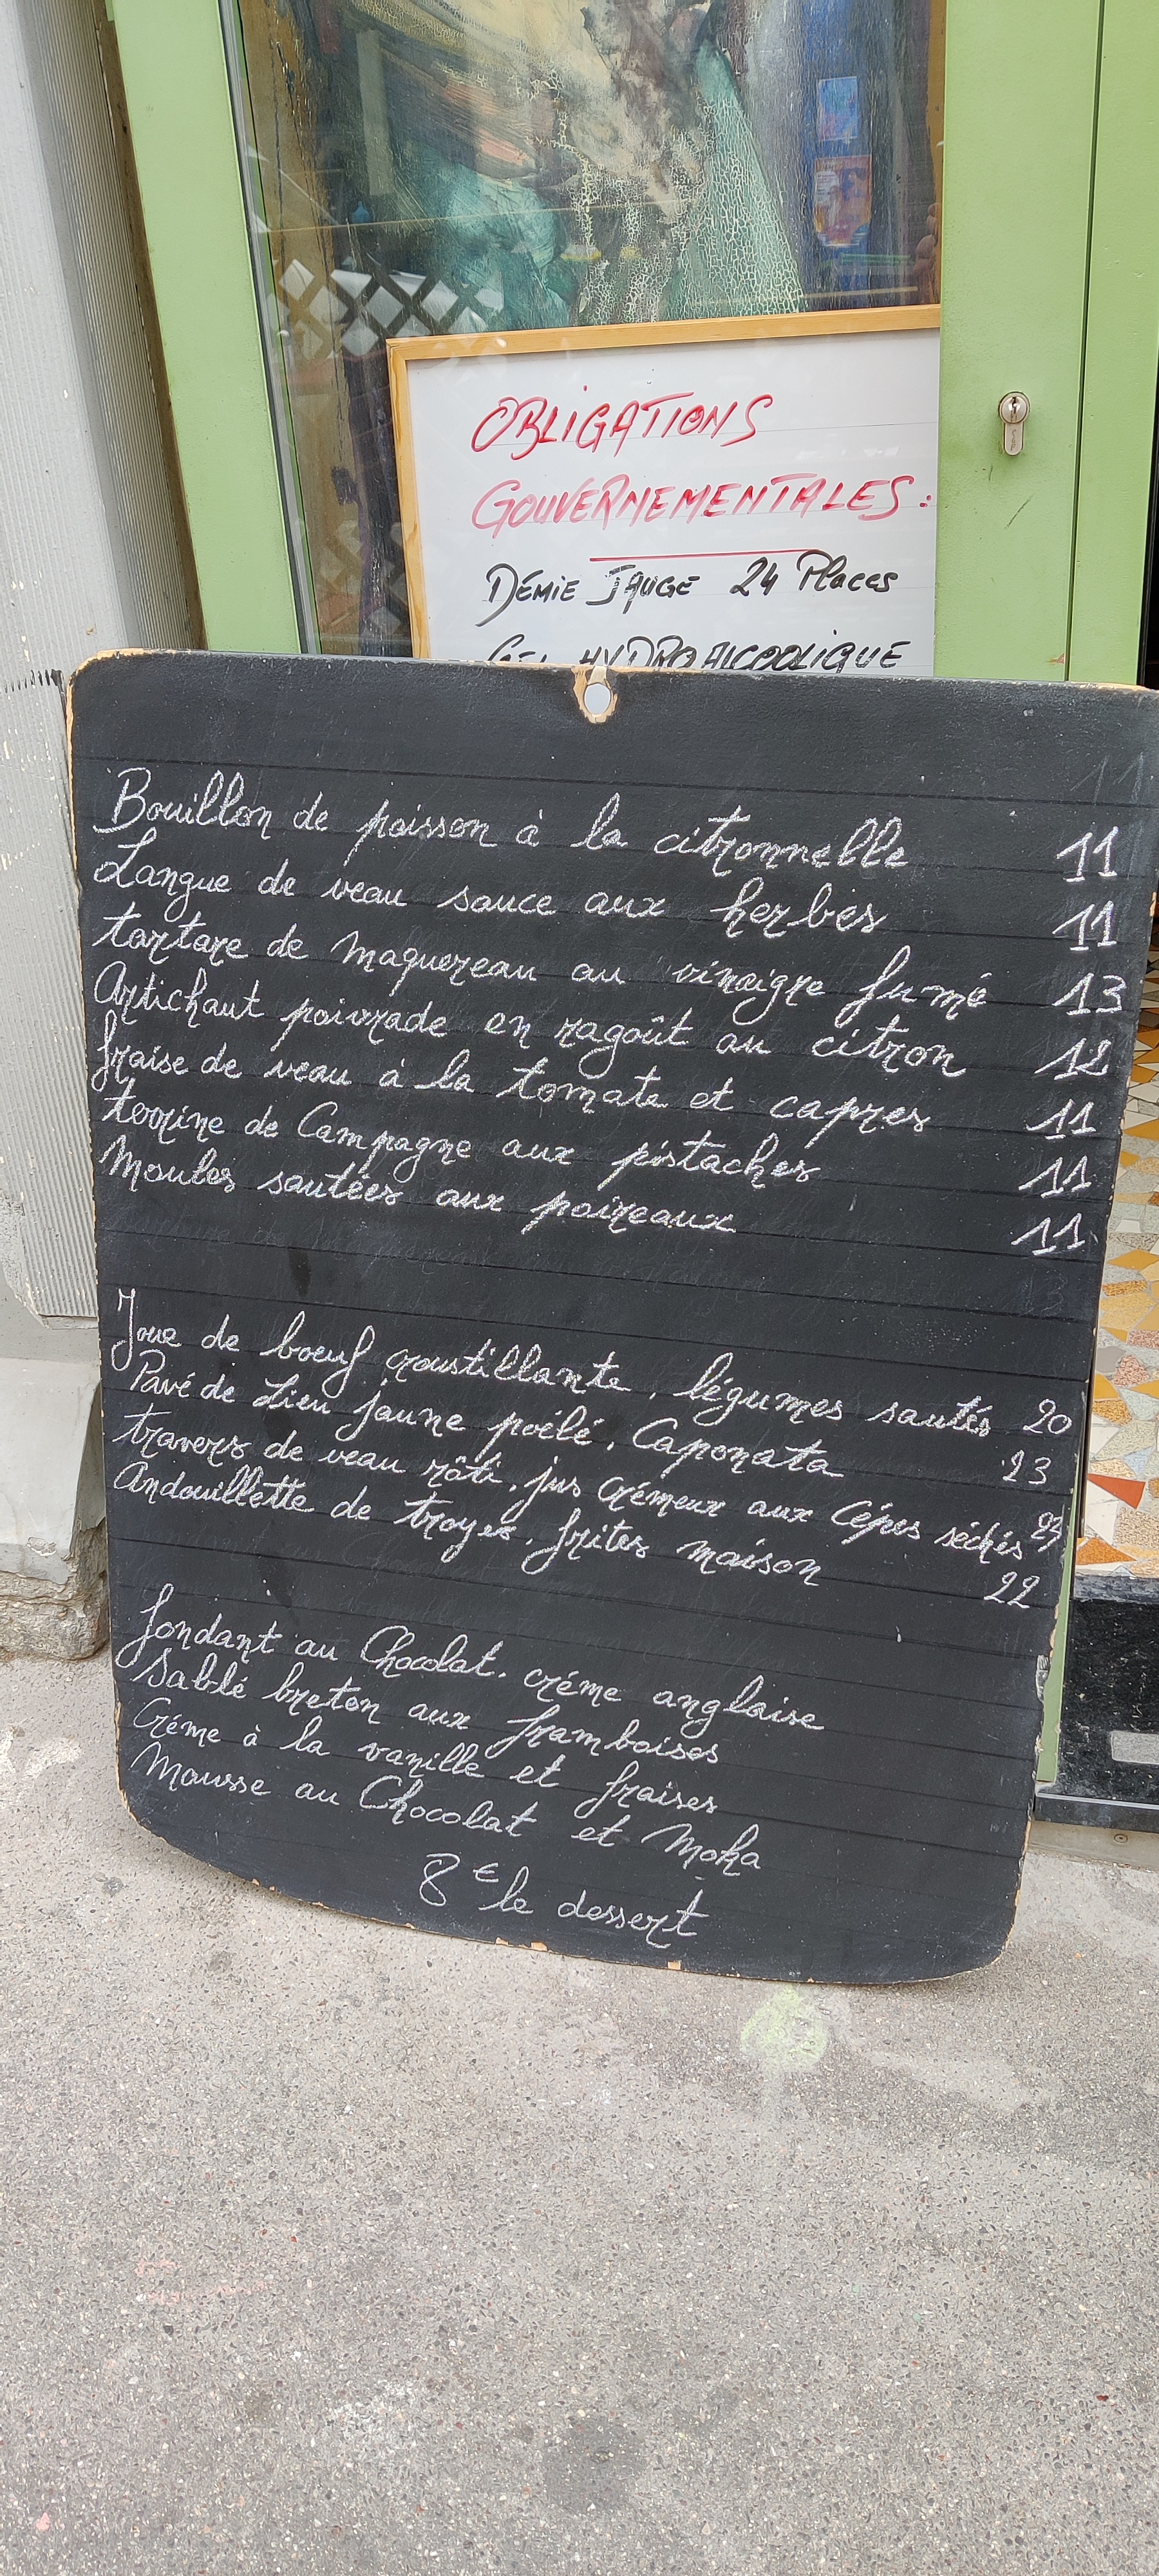 OBLIGATIONS
GOUVERNEMENTALES :
DÉMIE JAUGE 24 Places
GEL HYDROALCOOLIQUE
Bouillon de poisson à la citronnelle 11
Langue de veau sauce aux herbes 11
tartare de maquereau au vinaigre fumé 13
Artichaut poivrade en ragoût au citron 12
fraise de veau à la tomate et capres 11
terrine de Campagne aux pistaches 11
Moules sautées aux poireaux 11
Joue de boeuf croustillante, légumes sautés 20
Pavé de Lieu jaune poêlé, Caponata 23
travers de veau rôti, jus crémeux aux Cèpes séchés 23
Andouillette de troyes, frites maison 22
fondant au Chocolat. crème anglaise
Sablé breton aux framboises
Crème à la vanille et fraises
Mousse au Chocolat et Moka
8€ le dessert